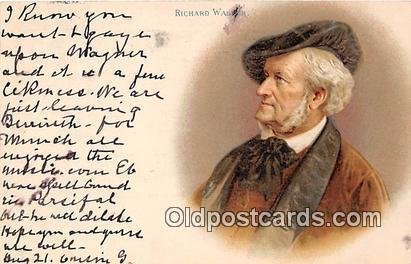 RICHARD WAGNER
I Know you
want to gaze
upon Wagner
and it is a fine
likeness. We are
just leaving
for
Munich all
enjoyed the
music. even Eb
were spell bound
in Parsifal
but he will
Hope you and yours
are well -
Aug 21. Cousin G.
Oldpostcards.com